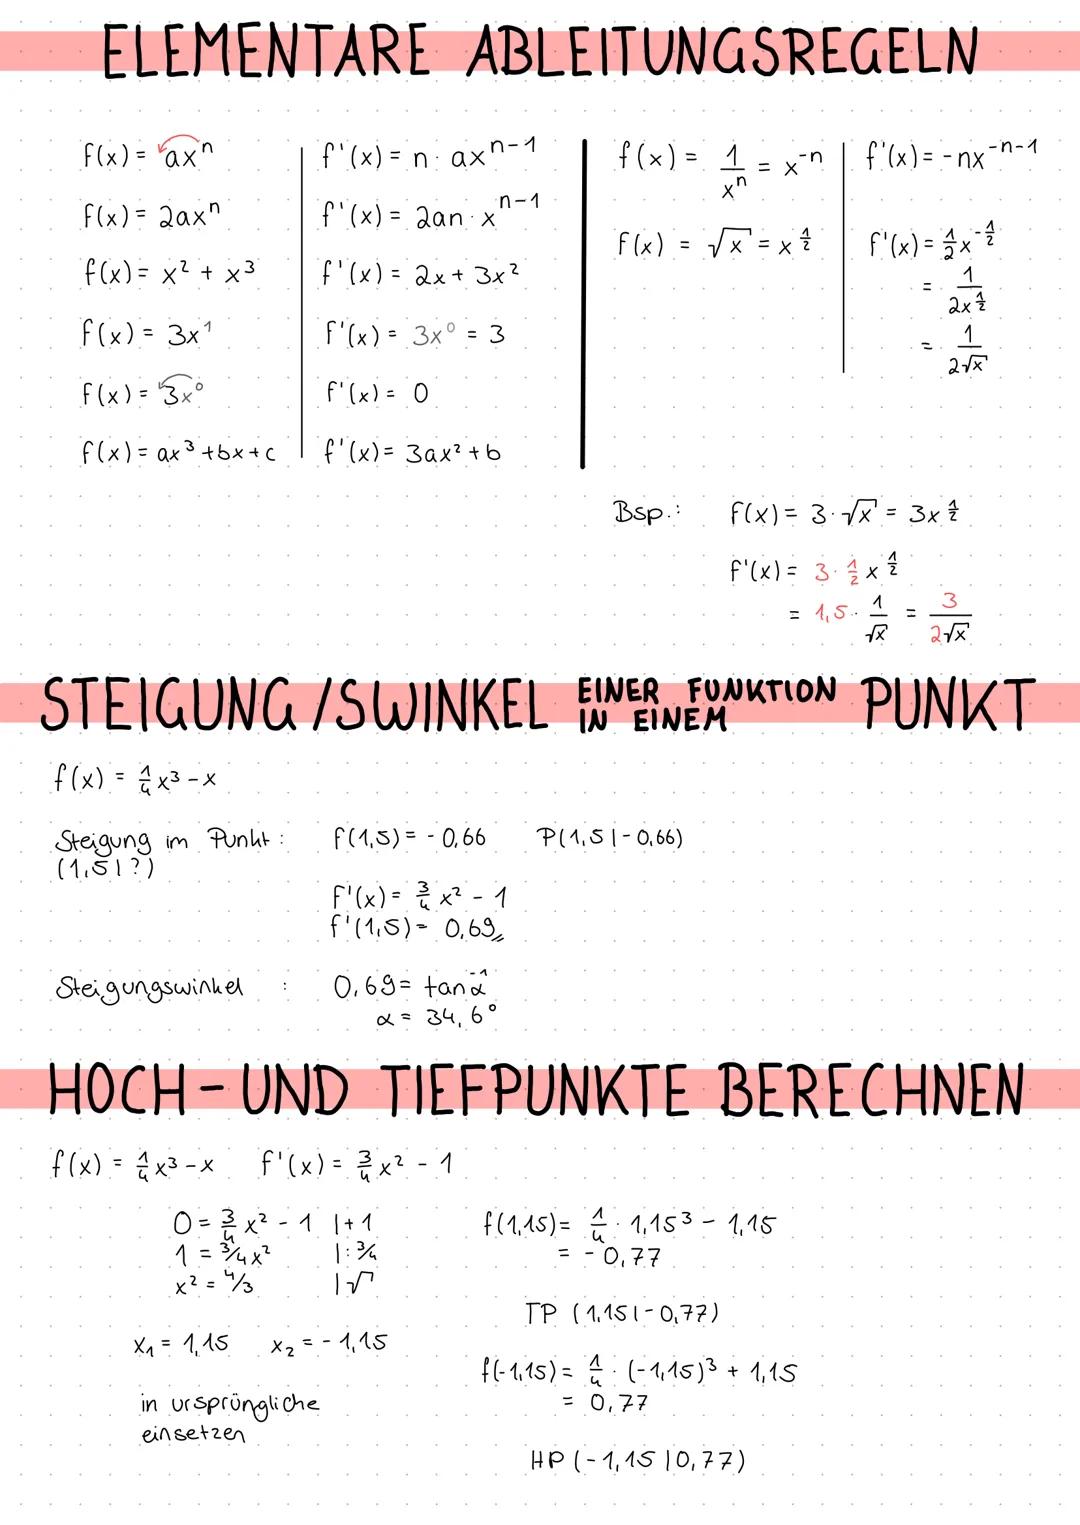 ELEMENTARE ABLEITUNGSREGELN
f(x) = axⁿ | f'(x) = n · axⁿ⁻¹
f(x) = 2axⁿ | f'(x) = 2an · xⁿ⁻¹
f(x) = x² + x³ | f'(x) = 2x + 3x²
f(x) = 3x¹ | f'(x) = 3x⁰ = 3
f(x) = 3x⁰ | f'(x) = 0
f(x) = ax³ + bx + c | f'(x) = 3ax² + b
f(x) = 1/xⁿ = x⁻ⁿ | f'(x) = -nx⁻ⁿ⁻¹
f(x) = √x = x^½ | f'(x) = ½x^-½
= 1/2x^½
= 1/2√x
Bsp.: f(x) = 3·√x = 3x^½
f'(x) = 3·½x^½
= 1,5·1/√x = 3/2√x
STEIGUNG/SWINKEL EINER FUNKTION IN EINEM PUNKT
f(x) = ¼x³ - x
Steigung im Punkt: f(1,5) = -0,66 P(1,5|-0,66)
(1,5|?)
f'(x) = ¾x² - 1
f'(1,5) = 0,69
Steigungswinkel : 0,69 = tan⁻¹α
α = 34,6°
HOCH- UND TIEFPUNKTE BERECHNEN
f(x) = ¼x³ - x f'(x) = ¾x² - 1
0 = ¾x² - 1 |+1
1 = ¾x² |:¾
x² = 4/3 |√
x₁ = 1,15 x₂ = -1,15
in ursprüngliche
einsetzen
f(1,15) = ¼ · 1,15³ - 1,15
= -0,77
TP (1,15|-0,77)
f(-1,15) = ¼ · (-1,15)³ + 1,15
= 0,77
HP (-1,15|0,77)